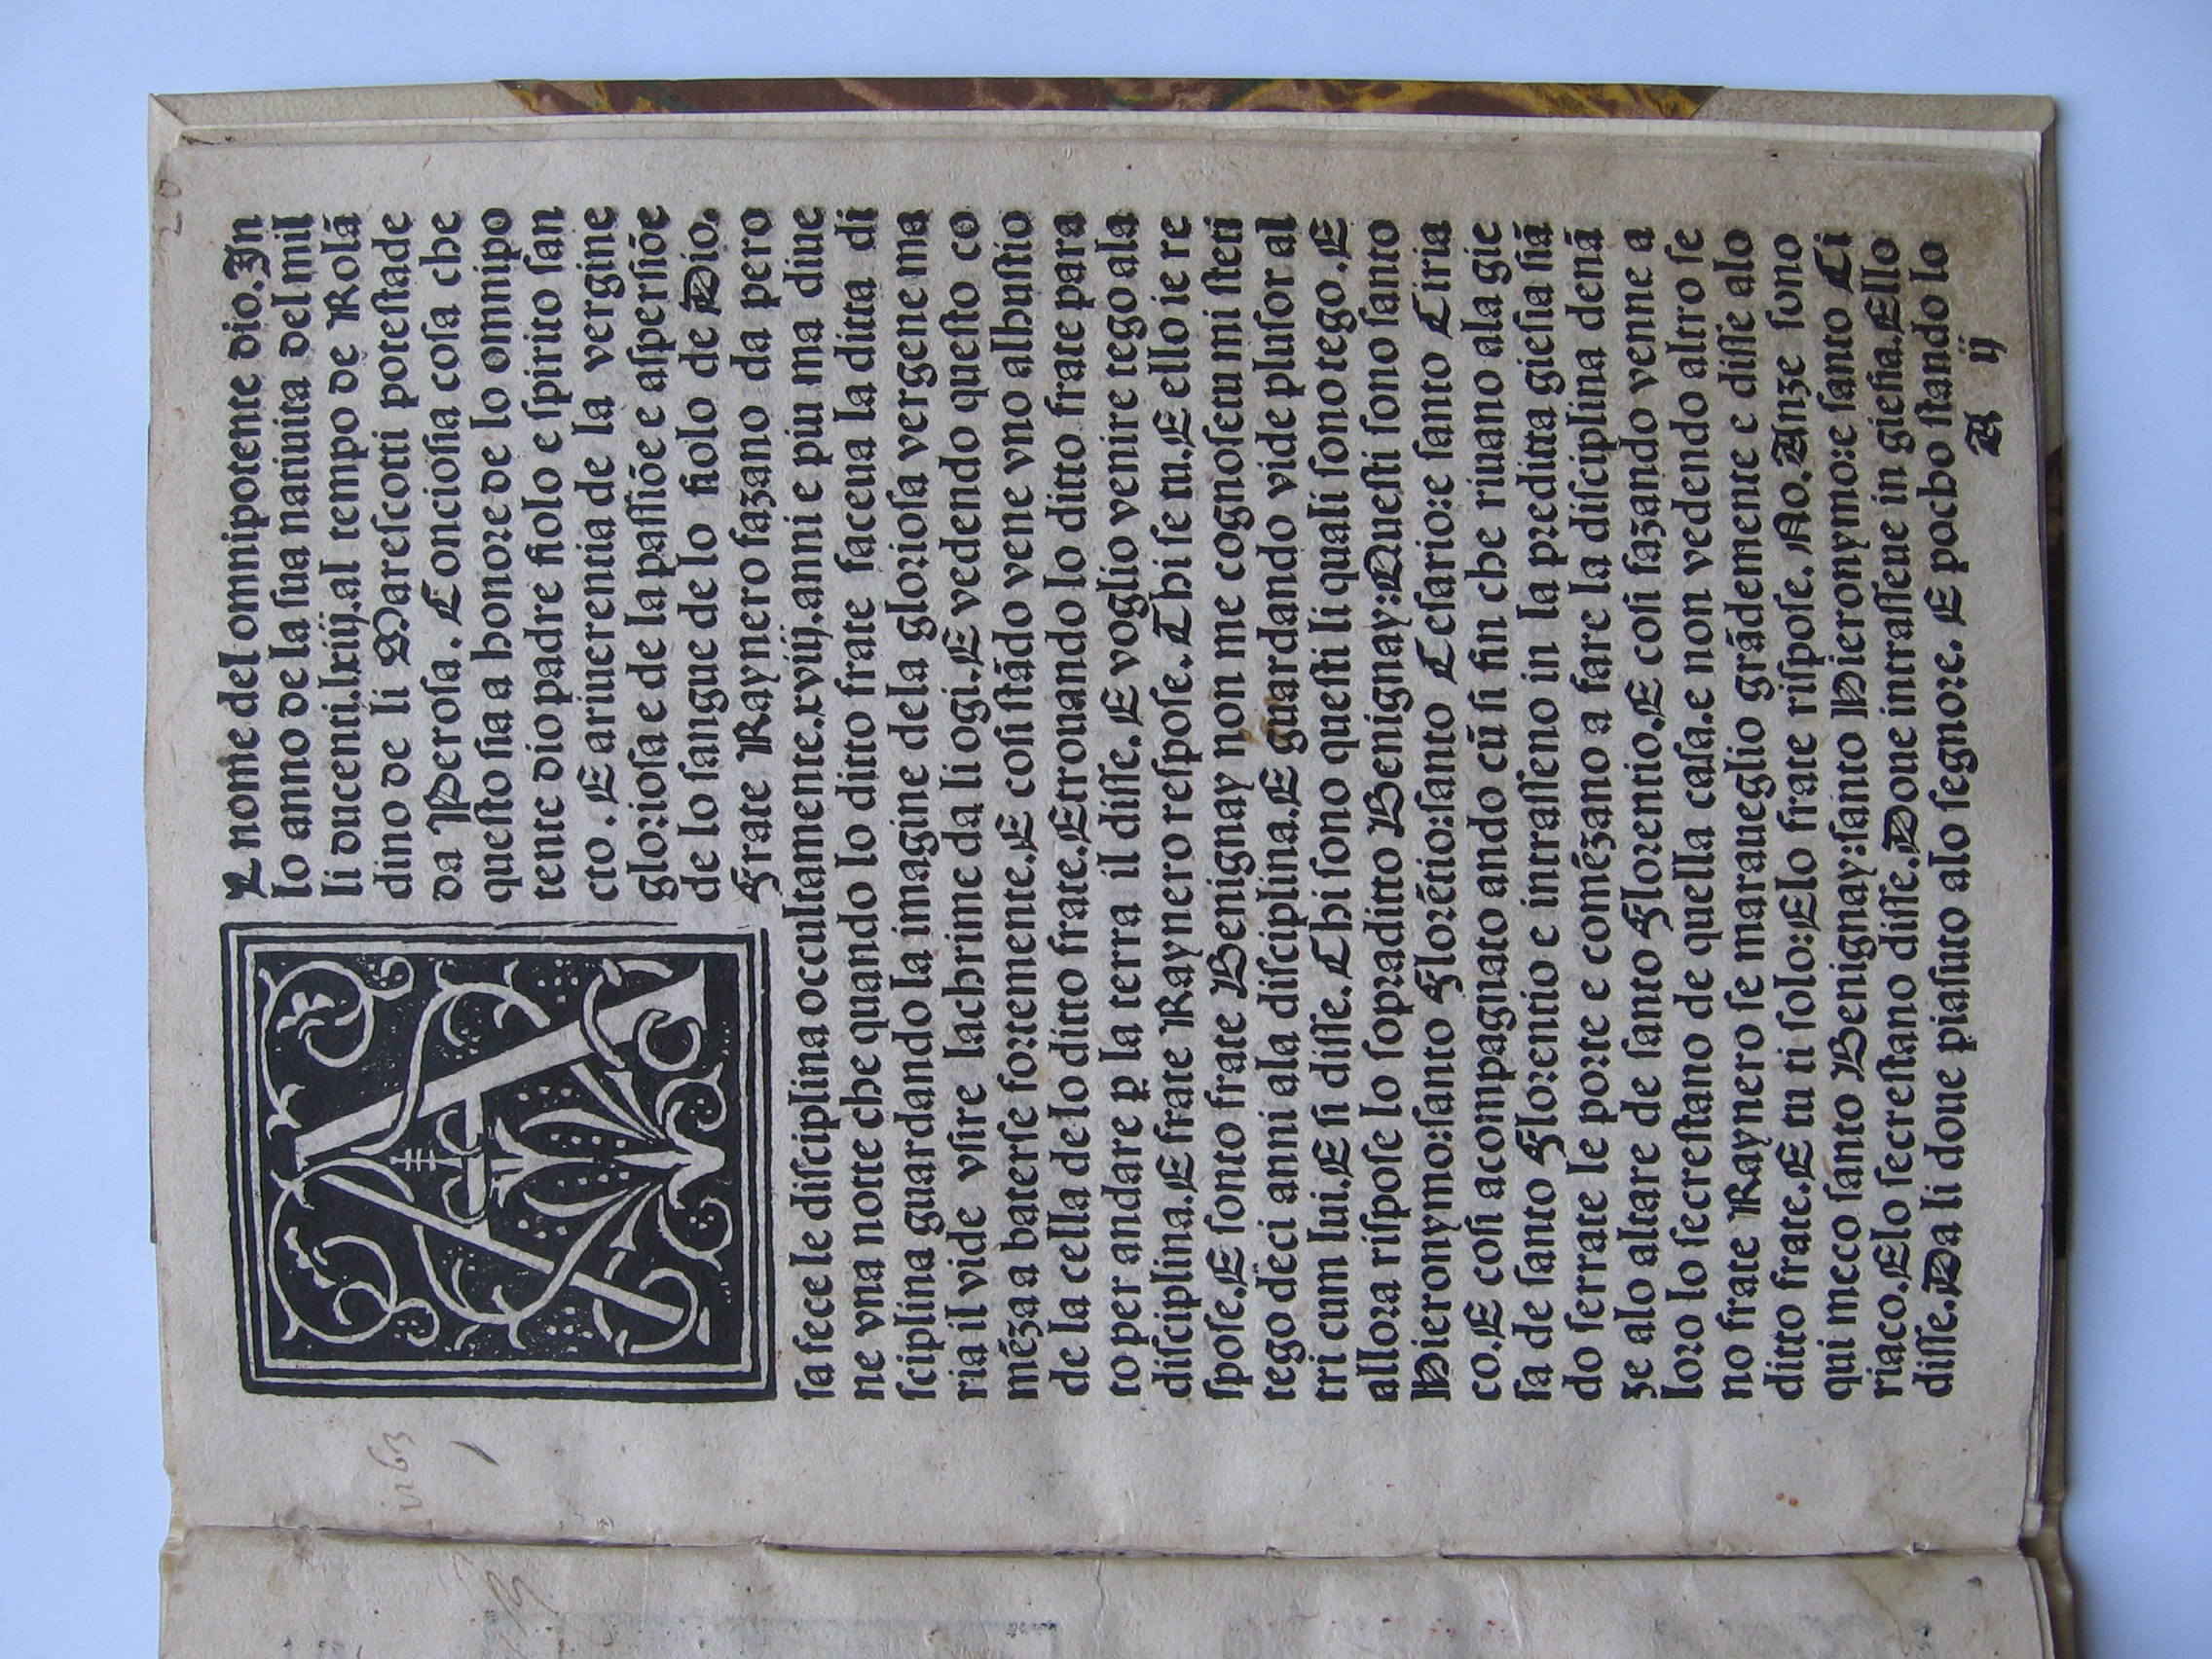 20
A
L nome del omnipotente dio. In
lo anno de la sua natiuita del mil
li ducenti.lxiiij.al tempo de Rolã
dino de li Marescotti potestade
da Perosa. Conciosia cosa che
questo sia a honore de lo omnipo
tente dio padre fiolo e spirito san
cto. E ariuerentia de la vergine
gloriosa e de la passiõe e aspersiõe
de lo sangue de lo fiolo de Dio.
Frate Raynero fazano da pero
sa fece le disciplina occultamente.xviij.anni e piu ma diue
ne vna notte che quando lo ditto frate faceua la ditta di
sciplina guardando la imagine dela gloriosa vergene ma
ria il vide vsire lachrime da li ogi.E vedendo questo co
méza a baterse fortemente.E cosi stãdo vene vno alhustio
de la cella de lo ditto frate.Etrouando lo ditto frate para
to per andare ꝑ la terra il disse.E voglio venire tego ala
disciplina.E frate Raynero respose.Chi se tu.E ello ie re
spose.E sonto frate Benignay non me cognoseu mi steti
tego deci anni ala disciplina.E guardando vide plusor al
tri cum lui.E si disse.Chi sono questi li quali sono tego.E
allora rispose lo sopraditto Benignay:Questi sono santo
Hieronymo:santo Florétio:santo Cesario:e santo Ciria
co.E cosi acompagnato ando cũ si fin che riuano ala gie
sa de santo Florentio e intrasseno in la preditta giesia siã
do serrate le porte e comézano a fare la disciplina denã
ze alo altare de santo Florentio.E cosi fazando venne a
loro lo secrestano de quella casa.e non vedendo altro se
no frate Raynero se maraueglio grãdemente e disse alo
ditto frate.E tu ti solo:Elo frate rispose.No.Anze sono
qui meco santo Benignay:santo Hieronymo:e santo Ci
riaco.Elo secrestano disse.Doue intrassene in giesia.Ello
disse.Da li doue piasuto alo segnore. E pocho stando lo
A ij